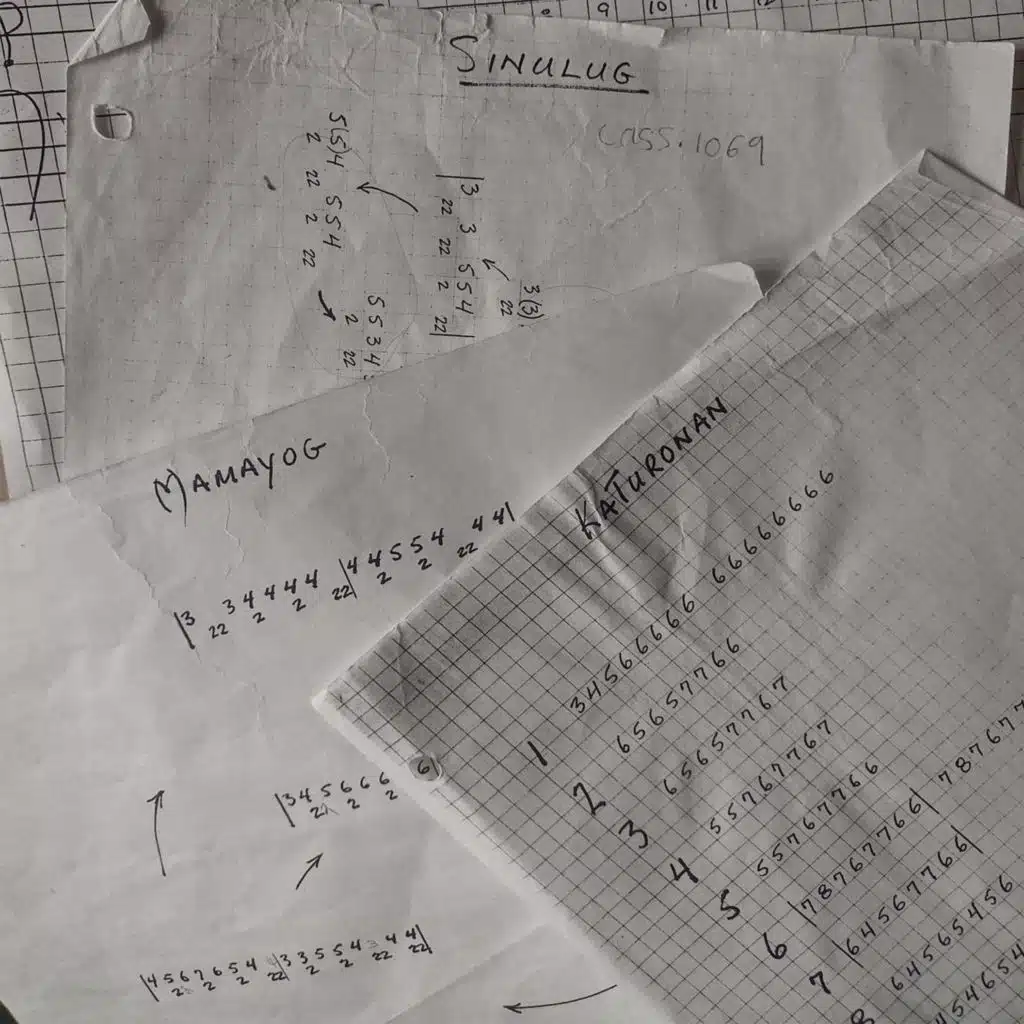 9 10 11 12
SINULUG
Cass. 1069
5(5)4 554
2 22 2 22
|3 3 554|
22 22 2 22|
3(3)
22
5534
2 22
MAMAYOG
|3 34444 |44554 44|
22 2 2 22 2 2 22
|345666 6
2 2 2
|4567654 |33554 44|
2 2 2 22 2 2 22 22
KATURONAN
1 345666666 66666666
2 65657766
3 65657767
4 55767767
5 557677766
6 |78767766| 787677
7 |64567766|
8 64565456
454654